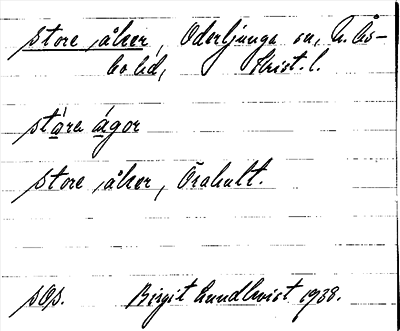 store åker, Oderljunga sn, N. Ås-
bo hd, Krist. l.
stára ágor
store åker, Örahult.
sOp. Birgit Lundkvist 1938.